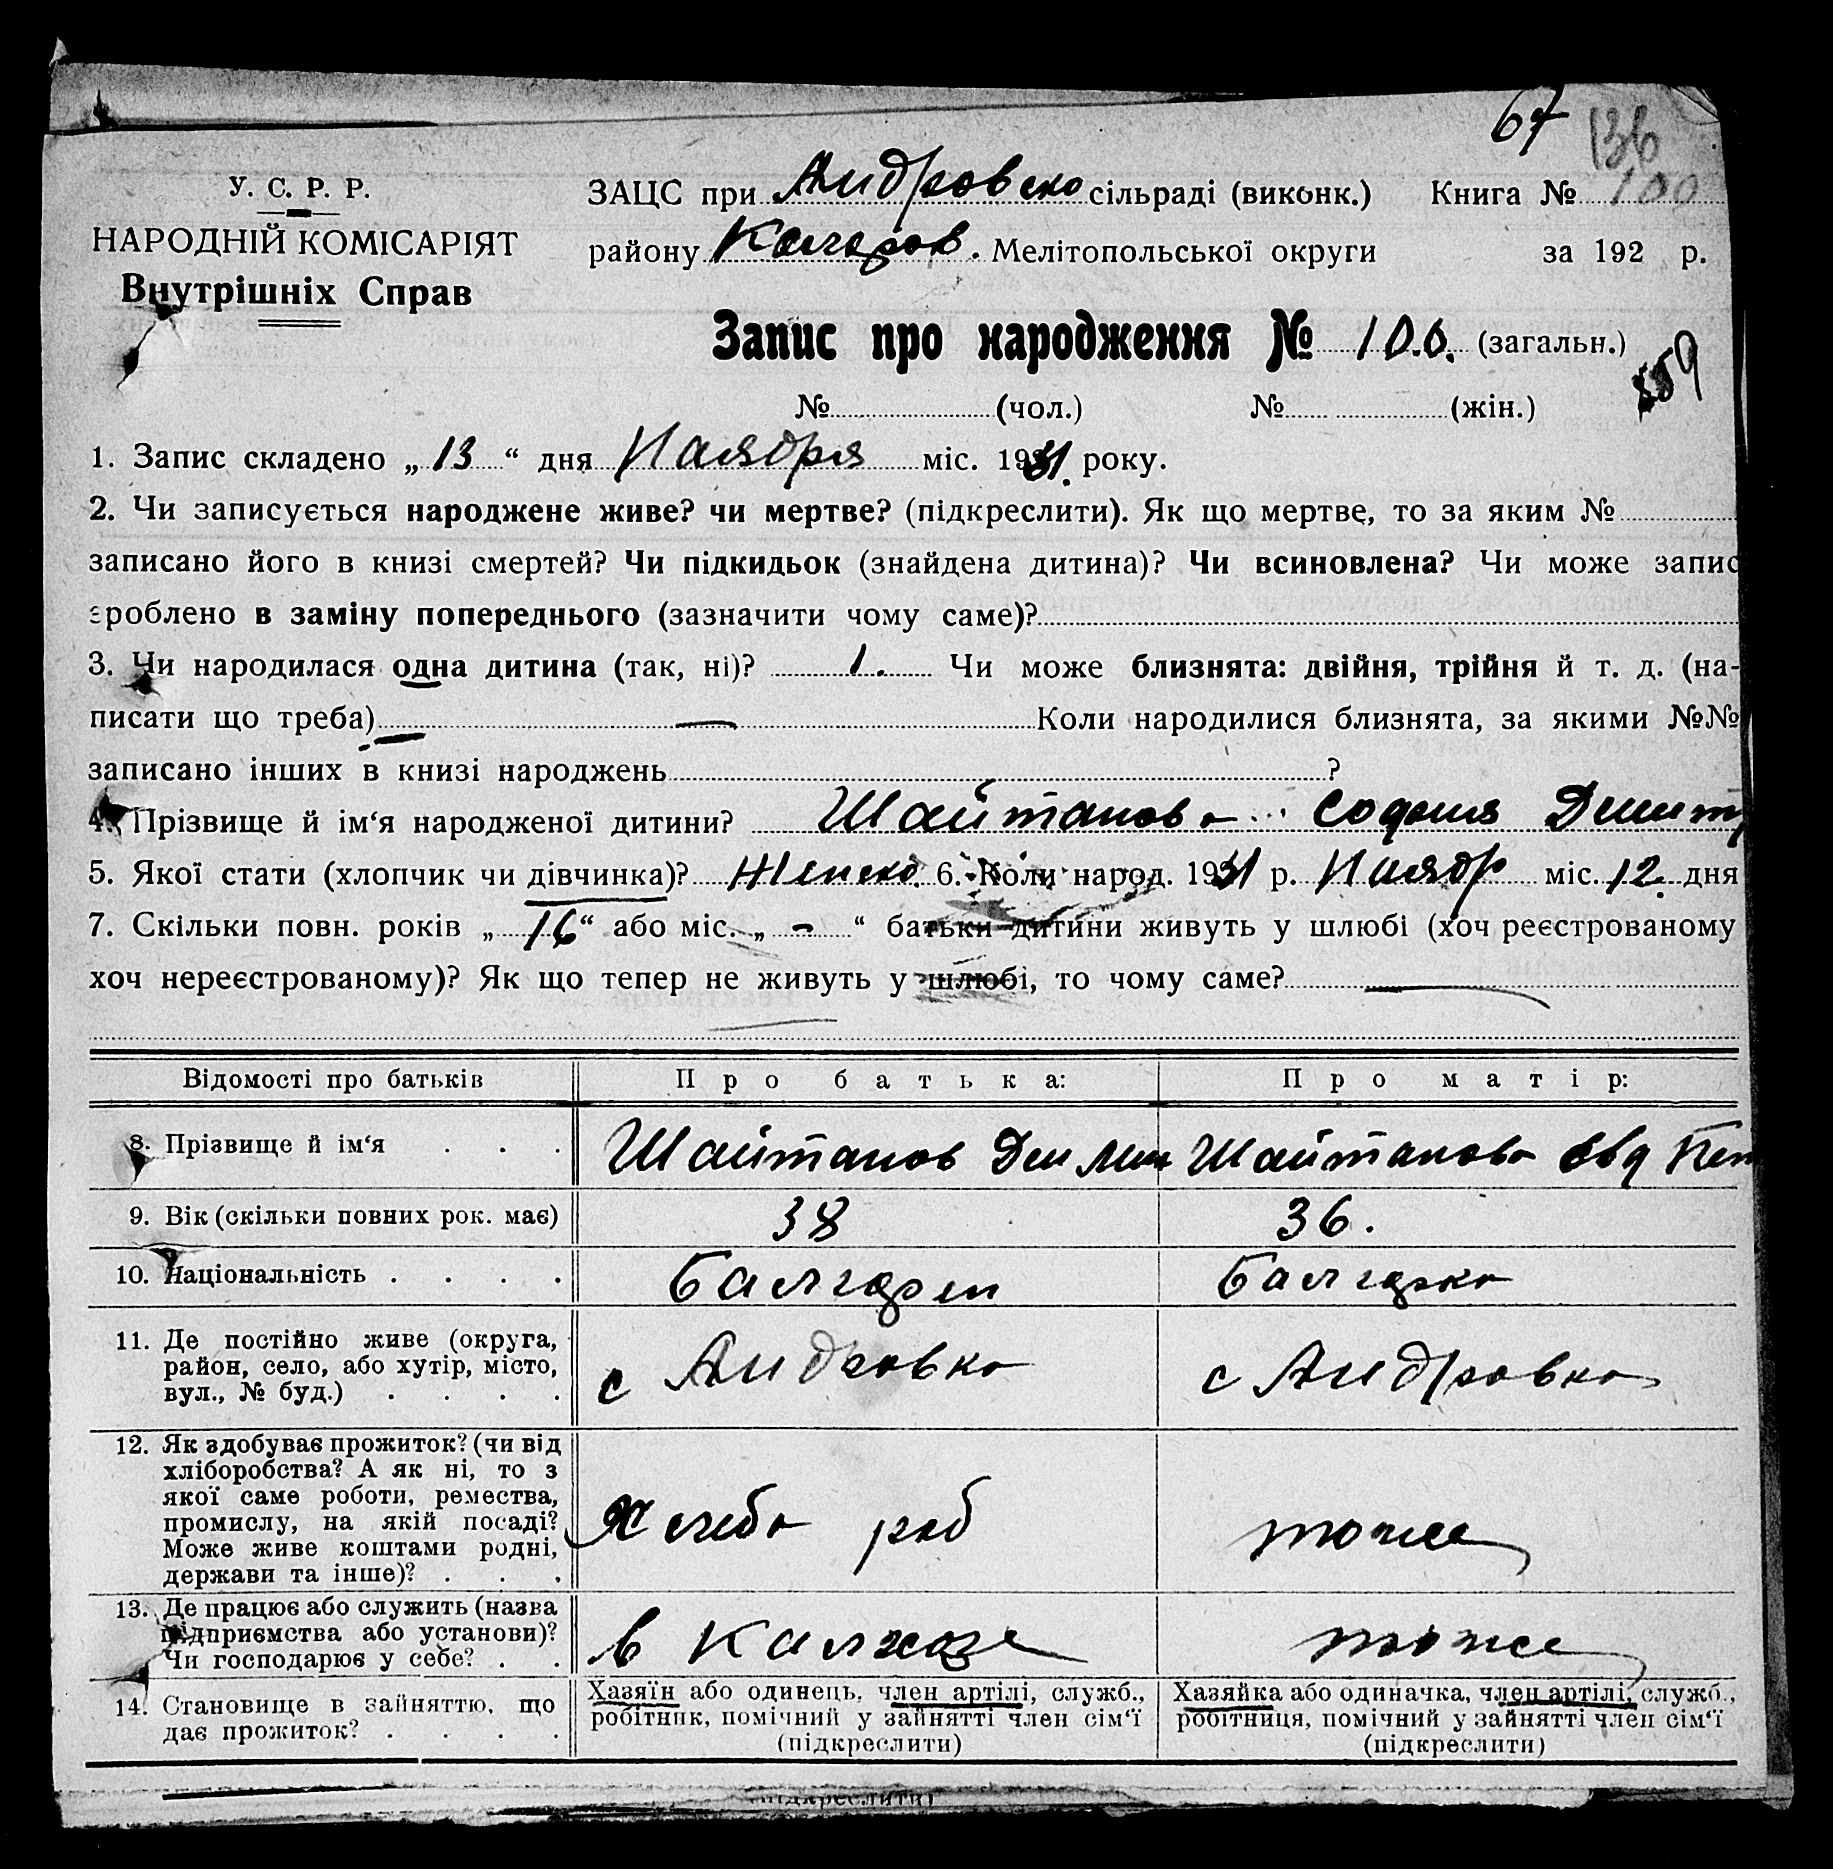 67
136
У. С. Р. Р.
ЗАЦС при Андровско сільраді (виконк.) Книга № 100
НАРОДНІЙ КОМІСАРІЯТ
району Коларов. Мелітопольської округи за 192 р.
Внутрішніх Справ
Запис про народження № 100. (загальн.)
559
№ (чол.) № (жін.)
1. Запис складено „ 13 “ дня Наября міс. 1931. року.
2. Чи записується народжене живе? чи мертве? (підкреслити). Як що мертве, то за яким №
записано його в книзі смертей? Чи підкидьок (знайдена дитина)? Чи всиновлена? Чи може запис
зроблено в заміну попереднього (зазначити чому саме)?
3. Чи народилася одна дитина (так, ні)? 1. Чи може близнята: двійня, трійня й т. д. (на-
писати що треба) — Коли народилися близнята, за якими №№
записано інших в книзі народжень ?
4. Прізвище й ім‘я народженої дитини? Шайтанова София Дмит
5. Якої стати (хлопчик чи дівчинка)? Женско. 6. Коли народ. 1931 р. Наябр міс. 12. дня
7. Скільки повн. років „ 16 “ або міс. „ - “ батьки дитини живуть у шлюбі (хоч реєстрованому
хоч нереєстрованому)? Як що тепер не живуть у шлюбі, то чому саме? —
Відомості про батьків Про батька: Про матір:
8. Прізвище й ім‘я . . . Шайтанов Дм Мин Шайтанова Евд Пет
9. Вік (скільки повних рок. має) 38 36.
10. Національність . . . . Балгарин Балгарка
11. Де постійно живе (округа,
район, село, або хутір, місто,
вул., № буд.) . . . . с Андровка с Андровка
12. Як здобуває прожиток? (чи від
хліборобства? А як ні, то з
якої саме роботи, ремества,
промислу, на якій посаді?
Може живе коштами родні,
держави та інше)? . . . Хлеба роб тоже
13. Де працює або служить (назва
підприємства або установи)?
Чи господарює у себе? . . в Калхозе тоже
14. Становище в зайняттю, що
дає прожиток? . . . .
Хазяїн або одинець, член артілі, служб.,
робітник, помічний у зайнятті член сім‘ї
(підкреслити)
Хазяйка або одиначка, член артілі, служб.,
робітниця, помічний у зайнятті член сім‘ї
(підкреслити)
(підкреслити)